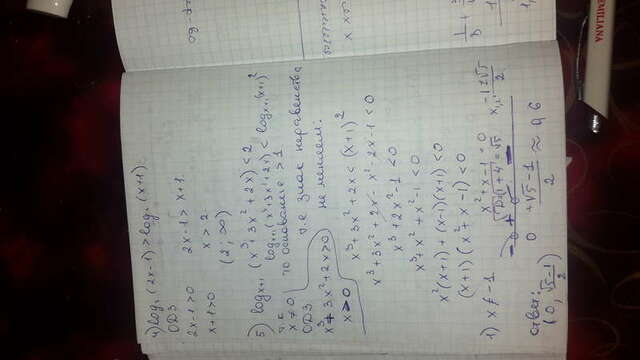 4) log₂(2x-1) > log₂(x+1).
ОДЗ
2x-1>0 2x-1 > x+1.
x+1>0 x > 2
(2; ∞)
5) logₓ₊₁(x³+3x²+2x) < 2
logₓ₊₁(x³+3x²+2x) < logₓ₊₁(x+1)²
т.к.
x≠0 то основание > 1
ОДЗ т.е знак неравенства
x³+3x²+2x>0 не меняем:
x>0 x³+3x²+2x < (x+1)²
x³+3x²+2x - x²-2x-1 < 0
x³+2x²-1 < 0
x³+x²+x²-1 < 0
x²(x+1)+(x-1)(x+1) < 0
(x+1)(x²+x-1) < 0
1) x≠-1. x²+x-1=0
√D=√1+4=√5 x₁,₂ = (-1±√5)/2
0 (√5-1)/2 ≈ 0,6
ответ:
(0, (√5-1)/2)